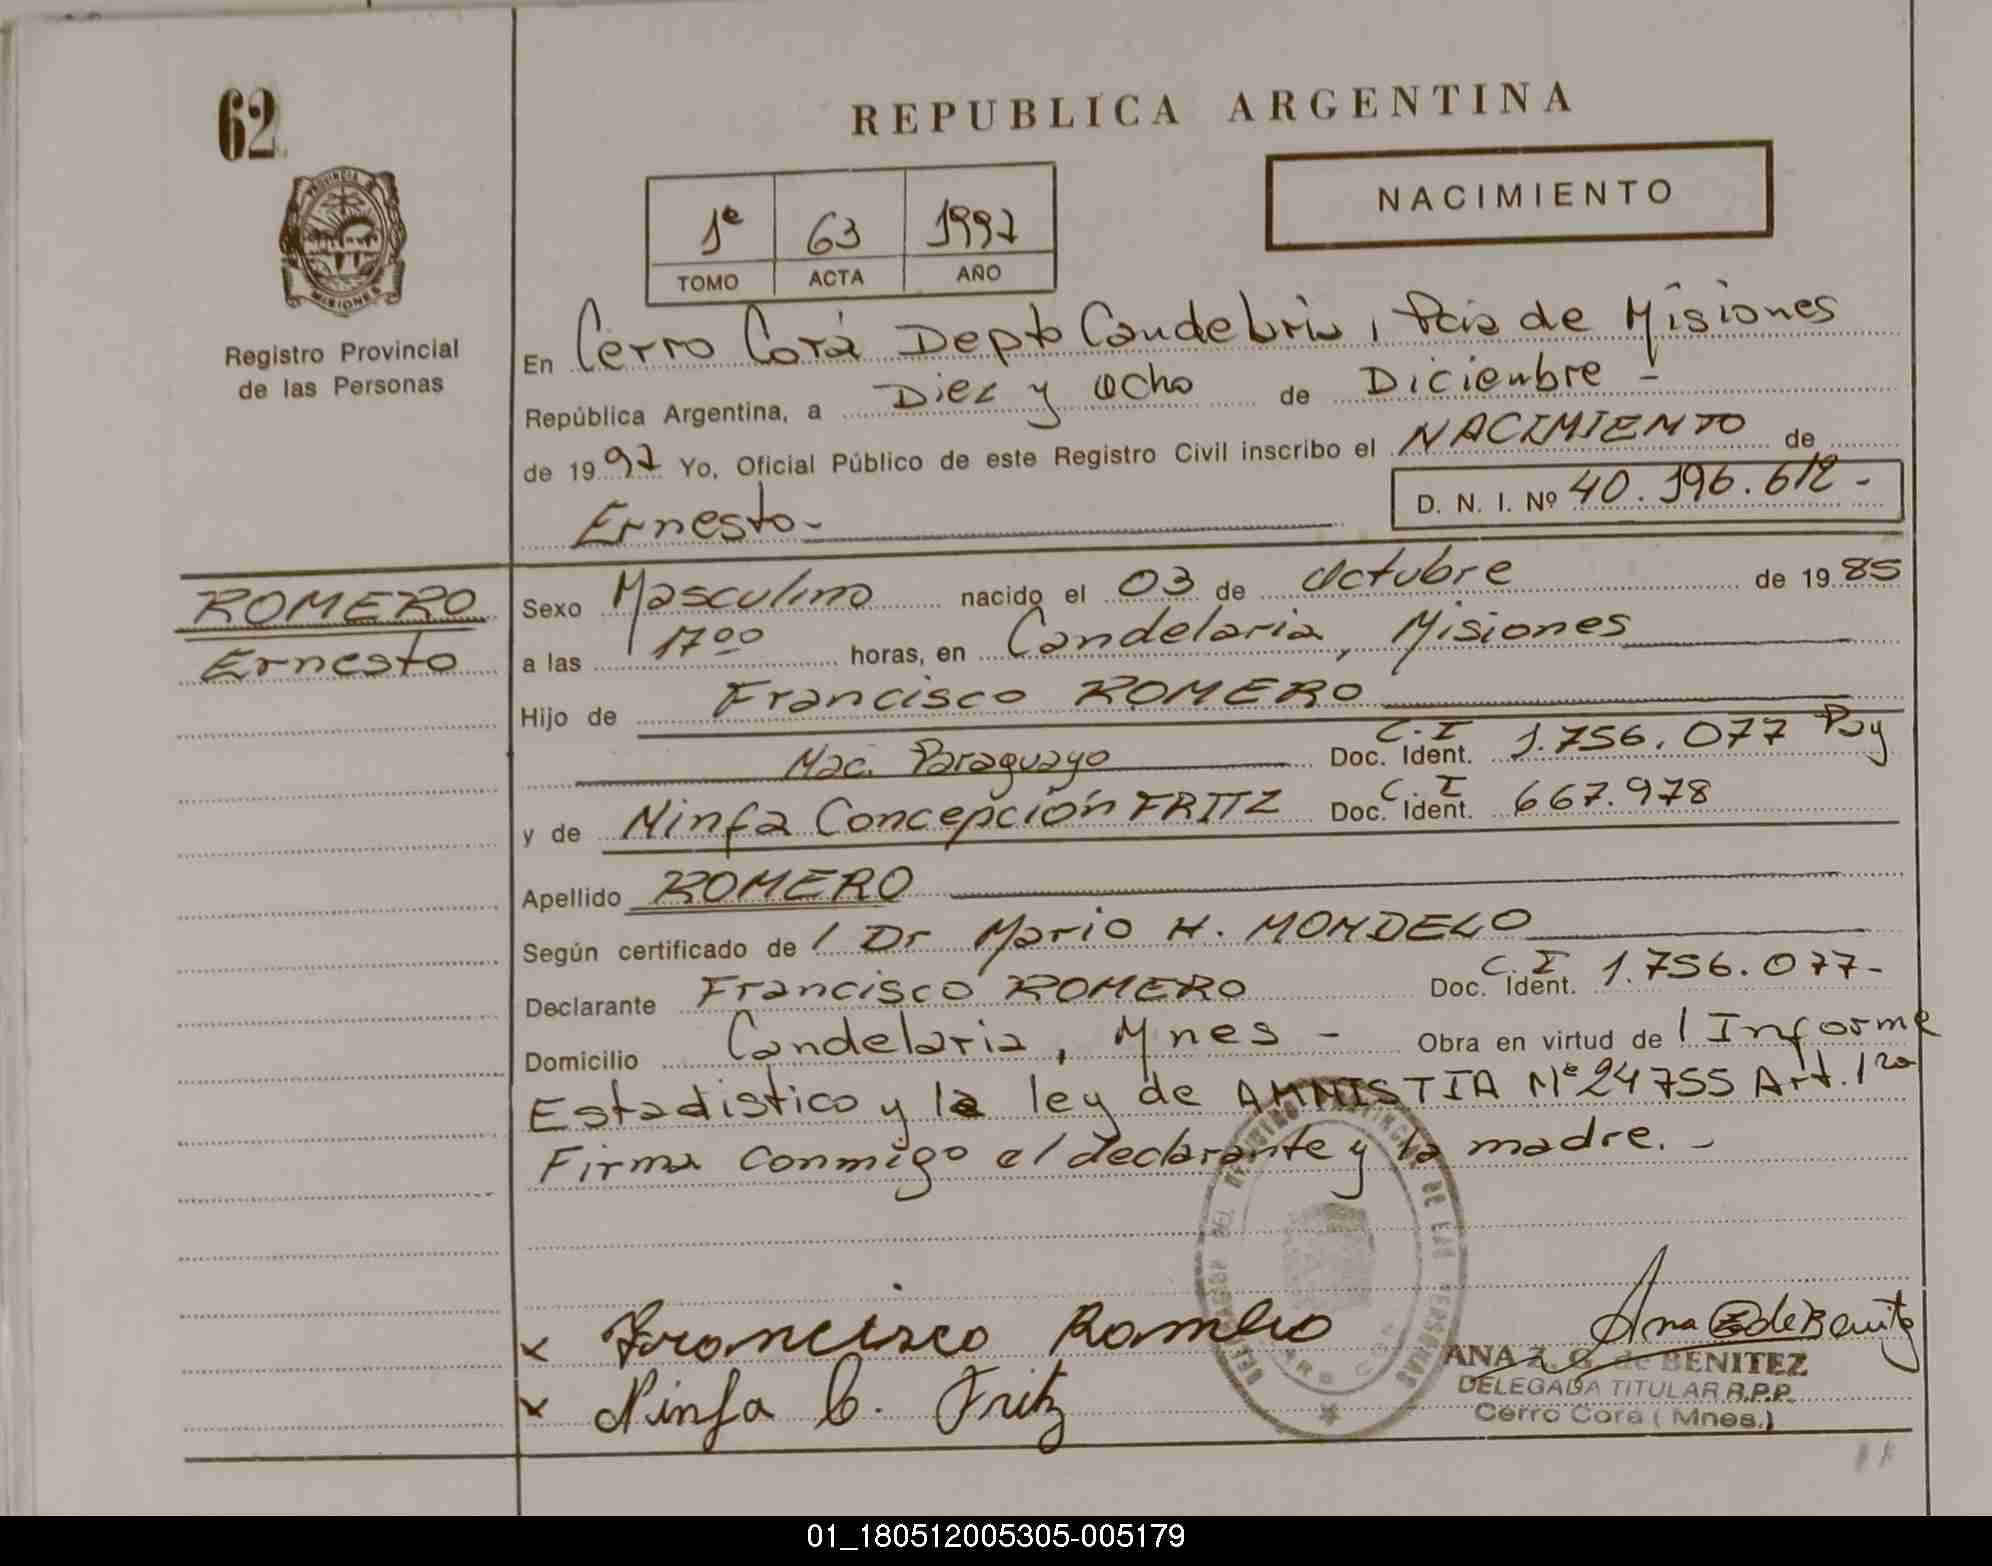 62
REPUBLICA ARGENTINA
NACIMIENTO
1º 63 1997
TOMO ACTA AÑO
PROVINCIA DE MISIONES
Registro Provincial
de las Personas
En Cerro Corá Depto Candelaria, Pcia de Misiones
República Argentina, a Diez y Ocho de Diciembre -
de 1997 Yo, Oficial Público de este Registro Civil inscribo el NACIMIENTO de
D. N. I. Nº 40.196.612 -
Ernesto -
ROMERO
Ernesto
Sexo Masculino nacido el 03 de Octubre de 1985
a las 17ºº horas, en Candelaria, Misiones
Hijo de Francisco ROMERO
Nac. Paraguayo C.I Doc. Ident. 1.756.077 Pay
y de Ninfa Concepción FRITZ C.I Doc. Ident. 667.978
Apellido ROMERO
Según certificado de / Dr Mario H. MONDELO
Declarante Francisco ROMERO C.I Doc. Ident. 1.756.077-
Domicilio Candelaria, Mnes - Obra en virtud de / Informe
Estadistico y la ley de AMNISTIA Nº 24755 Art. 1ro
Firma conmigo el declarante y la madre. -
x Francisco Romero
x Ninfa C. Fritz
Ana G de Benitez
ANA Z. G. de BENITEZ
DELEGADA TITULAR R.P.P.
Cerro Cora (Mnes.)
DELEGACION DEL REGISTRO PROVINCIAL DE LAS PERSONAS
01_180512005305-005179